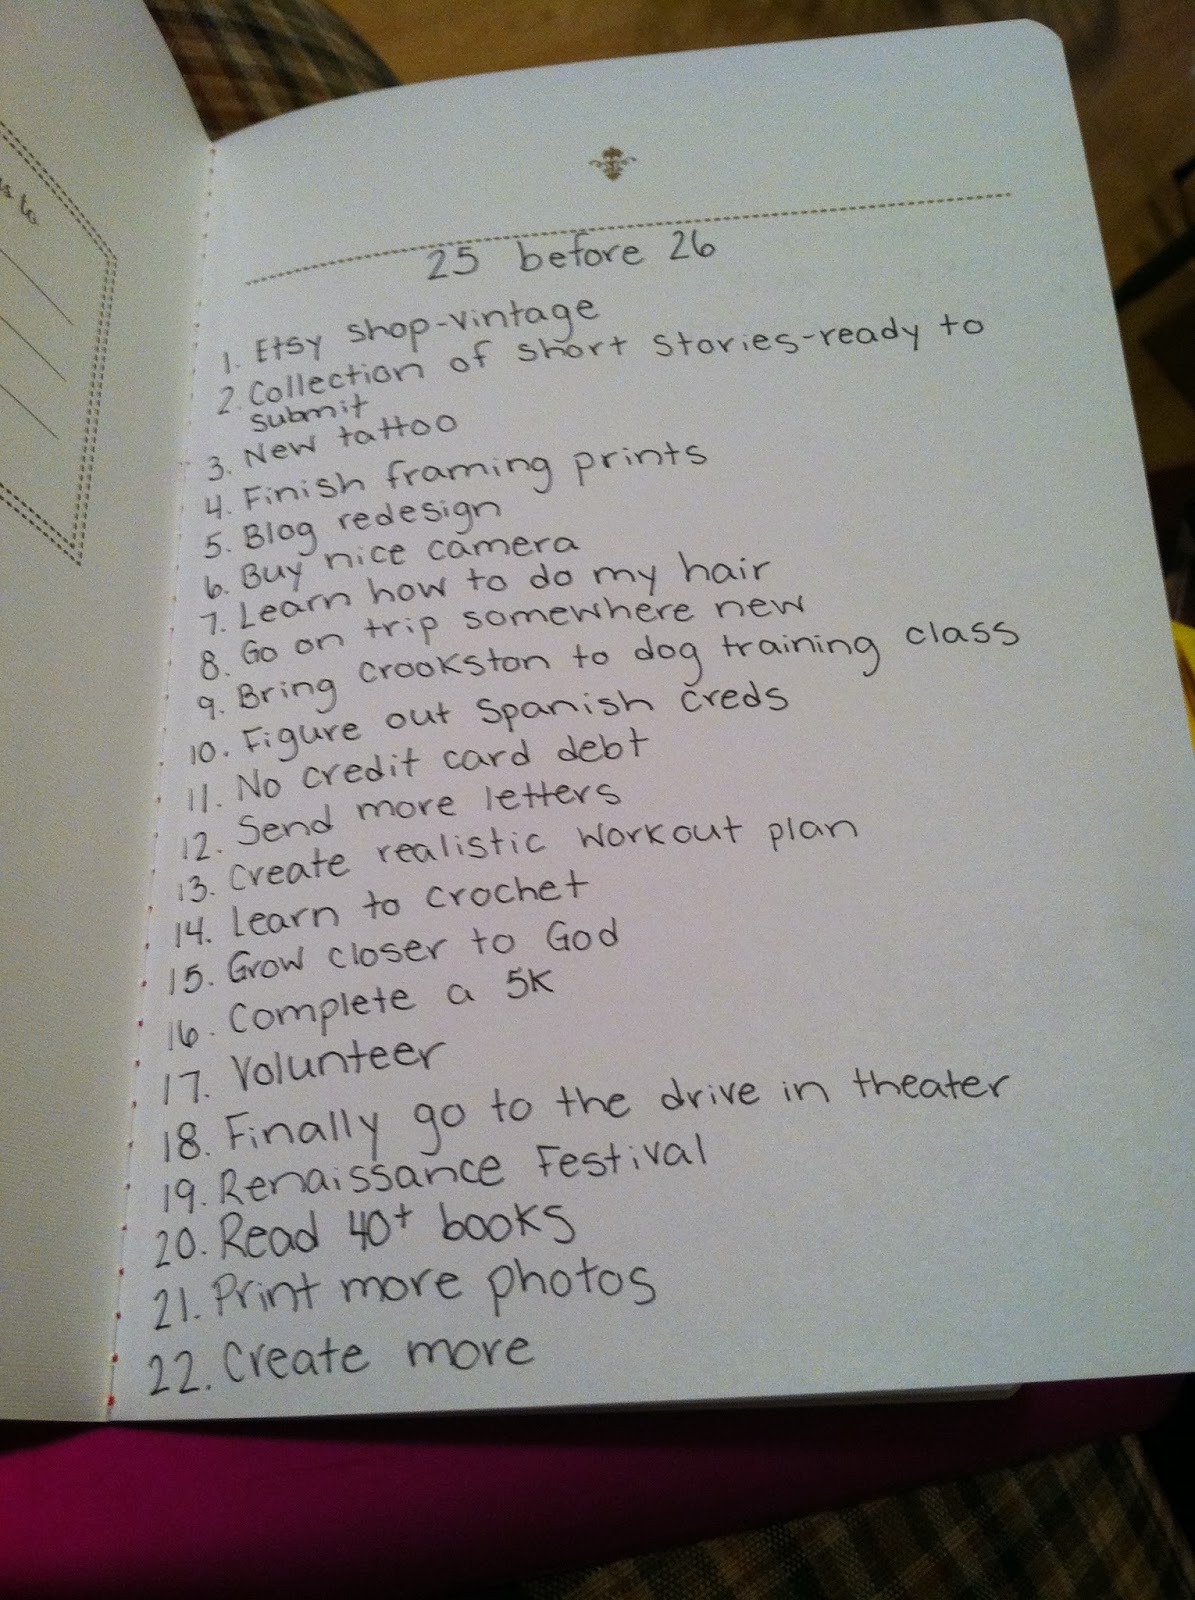 s to
25 before 26
1. Etsy shop-vintage
2. Collection of short stories-ready to
submit
3. New tattoo
4. Finish framing prints
5. Blog redesign
6. Buy nice camera
7. Learn how to do my hair
8. Go on trip somewhere new
9. Bring Crookston to dog training class
10. Figure out Spanish creds
11. No credit card debt
12. Send more letters
13. Create realistic workout plan
14. Learn to crochet
15. Grow closer to God
16. Complete a 5K
17. Volunteer
18. Finally go to the drive in theater
19. Renaissance Festival
20. Read 40+ books
21. Print more photos
22. Create more